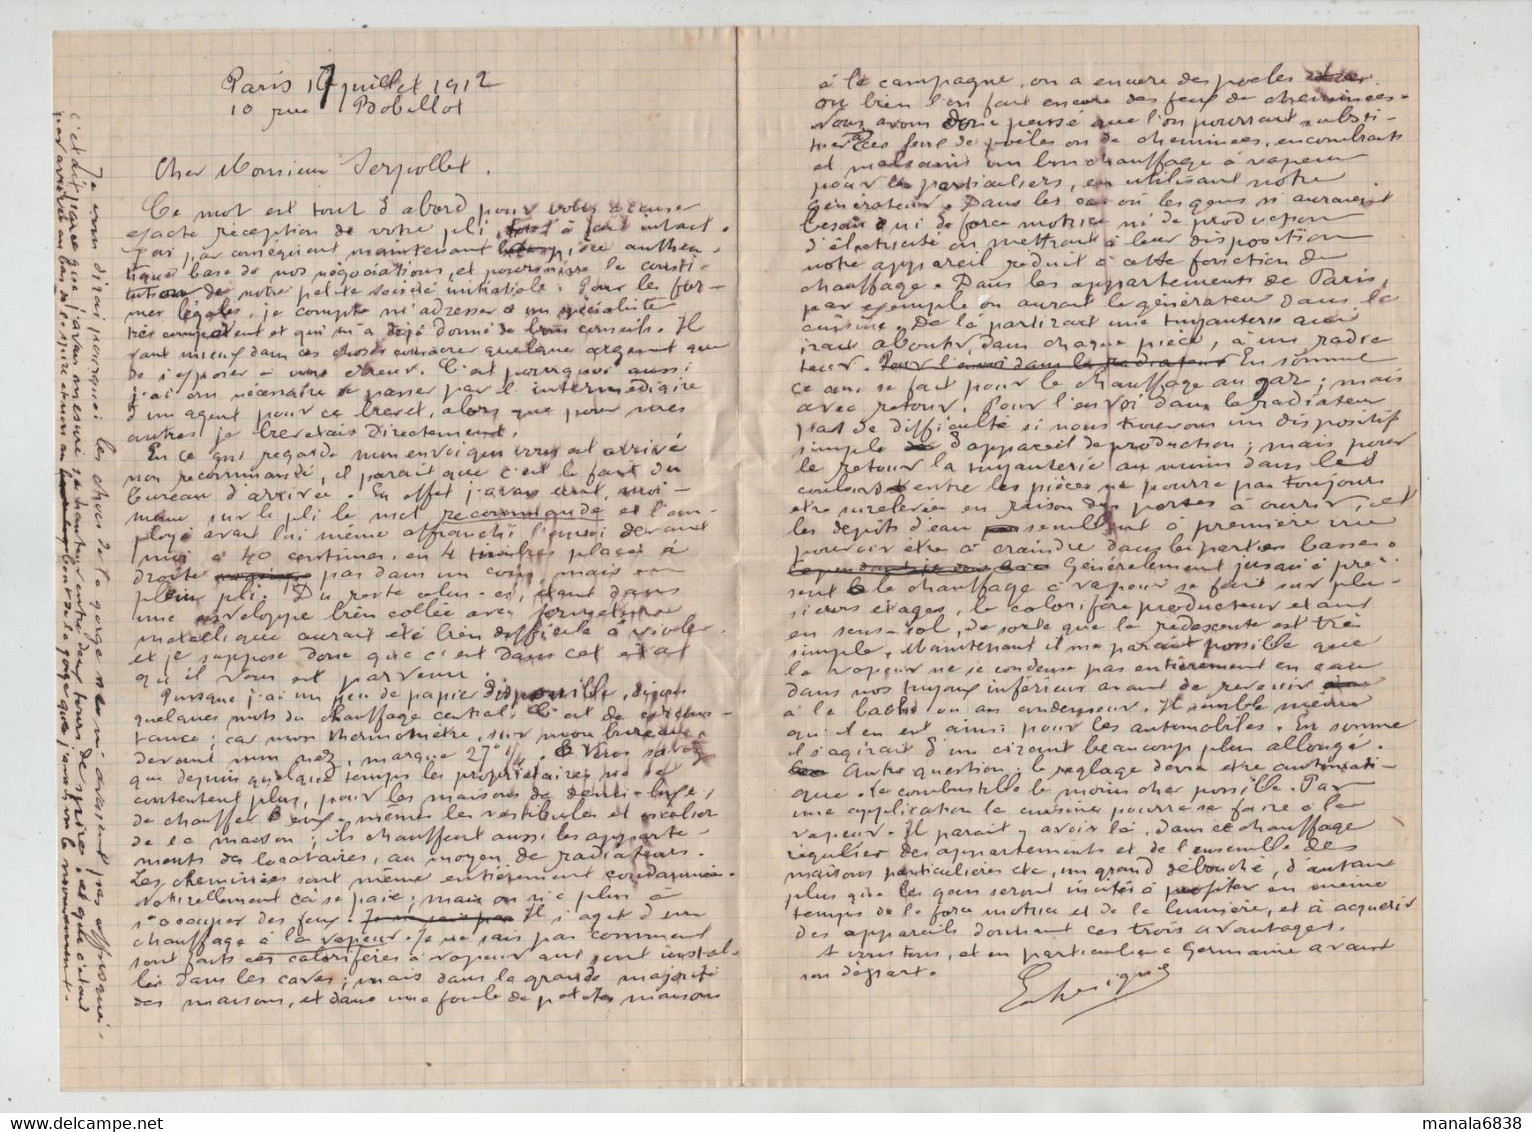 Paris 17 juillet 1912
10 rue Bobillot
Cher Monsieur Serpollet.
Ce mot est tout d'abord pour vous accuser
exacte réception de votre pli, tout à fait intact.
J'ai, par conséquent maintenant une authen-
tique base de nos négociations, et poursuivre la consti-
tution de notre petite société initiatiale. Pour les for-
mes légales, je compte m'adresser à un spécialiste
très compétent et qui m'a déjà donné de bons conseils. Il
vaut mieux dans ces choses consacrer quelque argent que
de s'exposer à une erreur. C'est pourquoi aussi
j'ai cru nécessaire de passer par l'intermédiaire
d'un agent pour ce brevet, alors que pour mes
autres je brevetais directement.
En ce qui regarde mon envoi qui vous est arrivé
non recommandé, il paraît que c'est le fait du
bureau d'arrivée. En effet j'avais écrit, moi-
même sur le pli le mot recommandé et l'em-
ployé avait lui même affranchi l'envoi devant
moi à 40 centimes, en 4 timbres placés à
droite pas dans un coin, mais en
plein pli. Du reste celui-ci, étant dans
une enveloppe bien collée avec fermeture
métallique aurait été bien difficile à violer
et je suppose donc que c'est dans cet état
qu'il vous est parvenu.
Puisque j'ai un peu de papier disponible, disons
quelques mots du chauffage central. C'est de circons-
tance; car mon thermomètre, sur mon bureau
devant mon nez, marque 27° 1/2. Vous savez
que depuis quelque temps les propriétaires ne se
contentent plus, pour les maisons de demi-luxe,
de chauffer eux-mêmes les vestibules et escalier
de la maison; ils chauffent aussi les apparte-
ments des locataires, au moyen de radiateurs.
Les cheminées sont même entièrement condamnées.
Naturellement ça se paie; mais on n'a plus à
s'occuper des feux. Je ne sais pas Il s'agit d'un
chauffage à la vapeur. Je ne sais pas comment
sont faits ces calorifères à vapeur qui sont instal-
lés dans les caves; mais dans la grande majorité
des maisons, et dans une foule de petites maisons
à la campagne, on a encore des poêles
ou bien l'on fait encore des feux de cheminées.
Nous avons donc pensé que l'on pourrait substi-
tuer à ces feux de poêles ou de cheminées, encombrants
et malsains un bon chauffage à vapeur
pour les particuliers, en utilisant notre
générateur. Dans les cas où les gens n'auraient
besoin ni de force motrice ni de production
d'électricité on mettrait à leur disposition
notre appareil réduit à cette fonction de
chauffage. Dans les appartements de Paris,
par exemple on aurait le générateur dans la
cuisine. De là partirait une tuyauterie qui
irait aboutir, dans chaque pièce, à un radia
teur. Pour l'envoi dans le radiateur En somme
ce qui se fait pour le chauffage au gaz; mais
avec retour. Pour l'envoi dans le radiateur
pas de difficulté si nous trouvons un dispositif
simple d'appareil de production; mais pour
le retour la tuyauterie au moins dans les
couloirs et entre les pièces ne pourra pas toujours
être surélevée en raison des portes à ouvrir, et
les dépôts d'eau semblent à première vue
pouvoir être à craindre dans les parties basses.
Cependant Généralement jusqu'à pré-
sent le chauffage à vapeur se fait sur plu-
sieurs étages, le calorifère producteur étant
en sous-sol, de sorte que la redescente est très
simple. Maintenant il me paraît possible que
la vapeur ne se condense pas entièrement en eau
dans nos tuyaux inférieurs avant de revenir
à la bâche ou au condenseur. Il semble même
qu'il en est ainsi pour les automobiles. En somme
il s'agirait d'un circuit beaucoup plus allongé.
Autre question: le réglage devra être automati-
que. Le combustible le moins cher possible. Par
une application la cuisine pourra se faire à la
vapeur. Il paraît y avoir là, dans ce chauffage
régulier des appartements et de l'ensemble des
maisons particulières etc, un grand débouché, d'autant
plus que les gens seront incités à profiter en même
temps de la force motrice et de la lumière, et à acquérir
des appareils donnant ces trois avantages.
A vous tous, et en particulier à Germaine avant
son départ.
Je vous dirai pourquoi les chocs de la gorge ne m'avaient pas offusqué:
c'est parce que j'avais mesuré la hauteur entre deux tours de spire, et que c'étant
par arrivée au bas de la spire et non au bout de la gorge que j'avais vu le mouvement.